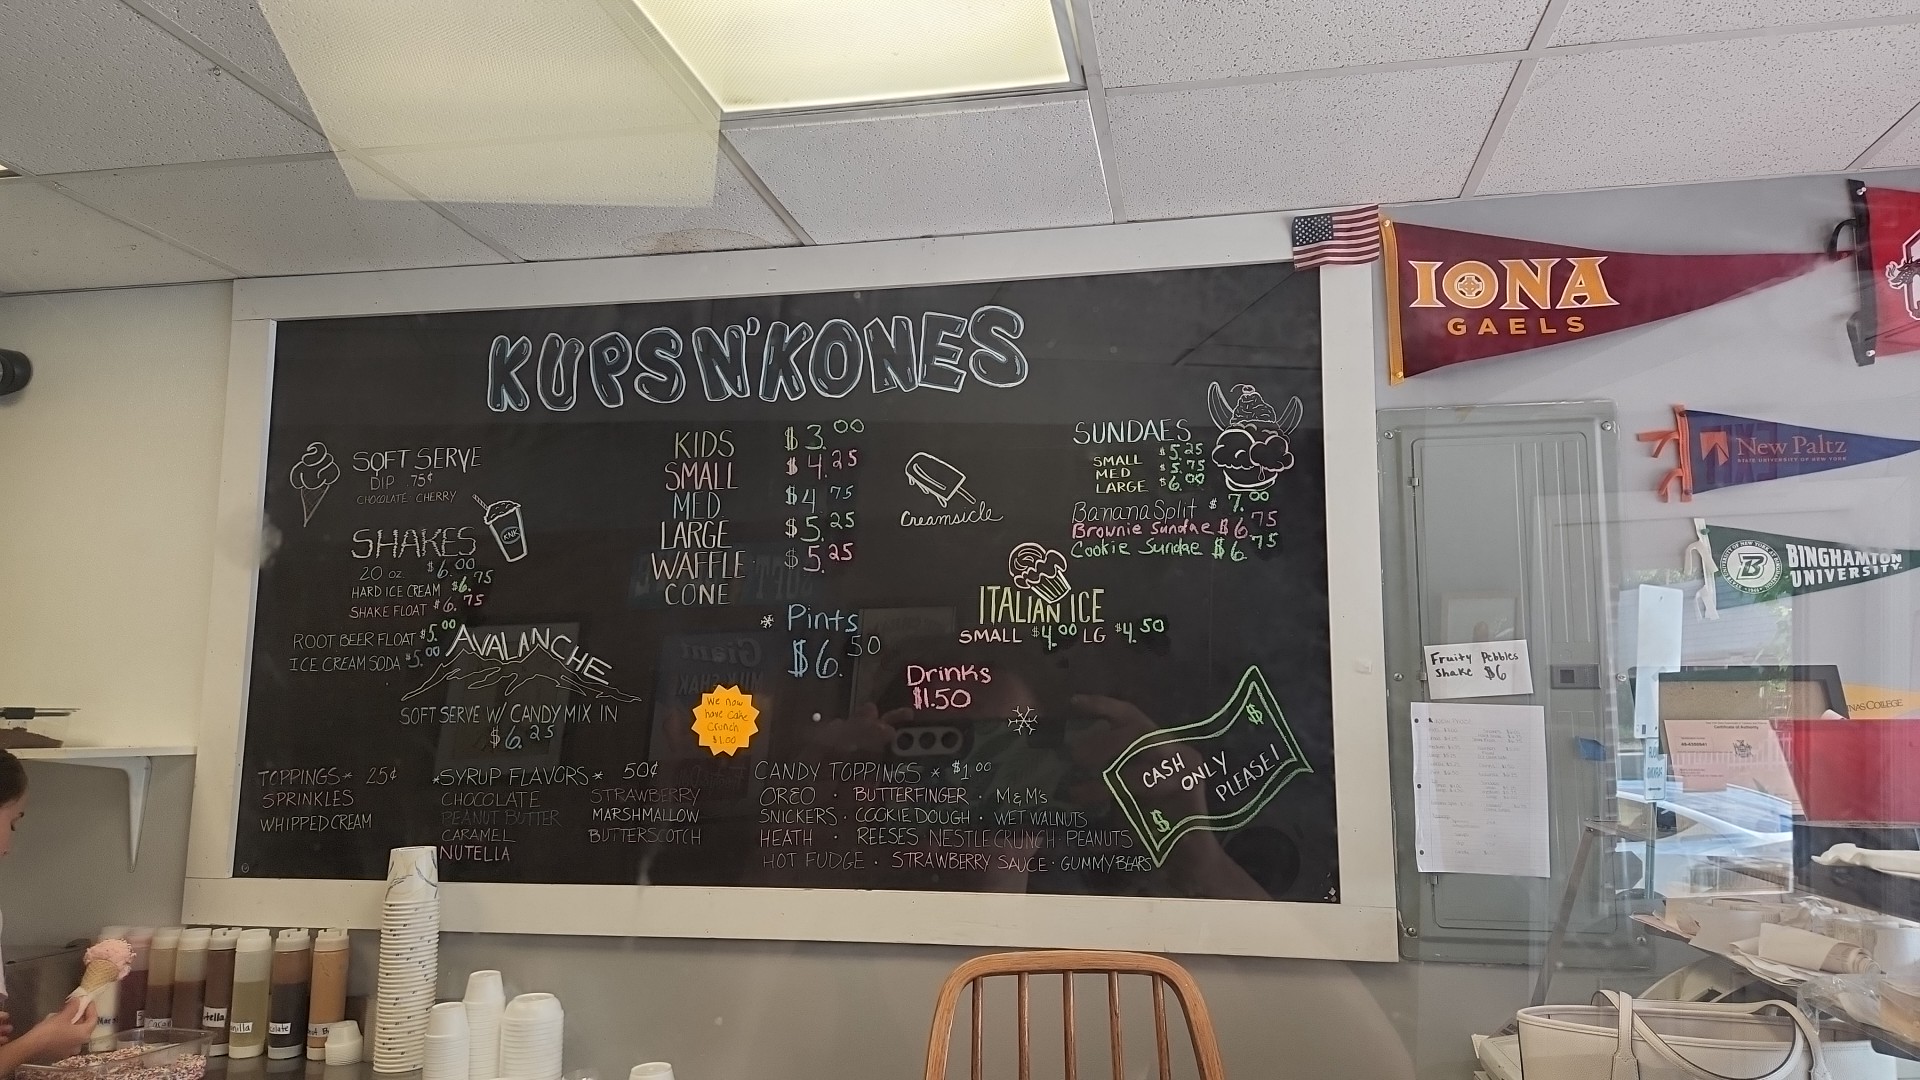 KUPS N' KONES
SOFT SERVE
DIP .75¢
CHOCOLATE · CHERRY
SHAKES
KNK
20 oz. $6.00
HARD ICE CREAM $6.75
SHAKE FLOAT $6.75
ROOT BEER FLOAT $5.00
ICE CREAM SODA $5.00
AVALANCHE
SOFT SERVE W/ CANDY MIX IN
$6.25
KIDS $3.00
SMALL $4.25
MED $4.75
LARGE $5.25
WAFFLE CONE $5.25
* Pints
$6.50
Creamsicle
SUNDAES
SMALL $5.25
MED $5.75
LARGE $6.00
Banana Split $7.00
Brownie Sundae $6.75
Cookie Sundae $6.75
ITALIAN ICE
SMALL $4.00 LG $4.50
Drinks
$1.50
We now
have Cake
Crunch
$1.00
TOPPINGS * 25¢
SPRINKLES
WHIPPED CREAM
*SYRUP FLAVORS* 50¢
CHOCOLATE STRAWBERRY
PEANUT BUTTER MARSHMALLOW
CARAMEL BUTTERSCOTCH
NUTELLA
CANDY TOPPINGS * $1.00
OREO · BUTTERFINGER · M&M's
SNICKERS · COOKIE DOUGH · WET WALNUTS
HEATH · REESES NESTLE CRUNCH · PEANUTS
HOT FUDGE · STRAWBERRY SAUCE · GUMMY BEARS
$
CASH
ONLY
PLEASE!
$
IONA
GAELS
New Paltz
STATE UNIVERSITY OF NEW YORK
B
BINGHAMTON
UNIVERSITY
Fruity Pebbles
Shake $6
Certificate of Authority